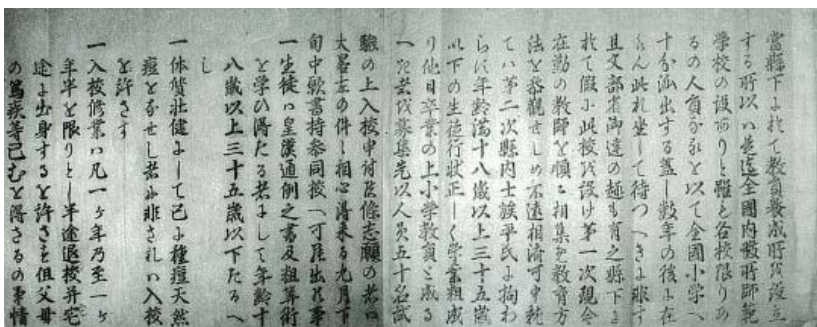 當縣下ニ於て教員養成所を設立
する所以ハ是迄全国内数所師範
学校の設ありと雖も各校限りあ
るの人員
を以て全国小学へ
十分派出する蓋し数年の後に在
らん此れ坐して待つへきに非す
且文部省御達の趣も有之縣下ニ
於て假ニ此校を設け第一次現今
在勤の教師を順々相集め教育方
法を参観せしめ不遠相済可申就
てハ第二次縣内士族平民に拘わ
らす年齢満十八歳以上三十五歳
以下の生徒行状正しく学業粗成
り他日卒業の上小学教員と成る
へき者を募集先以人員五十名試
験の上入校申付候條志願の者ハ
大畧左の件々相心得来る九月下
旬中願書持参同校へ可届出候事
一生徒ハ皇漢通例之書及粗算術
を学ひ得たる者にして年齢十
八歳以上三十五歳以下たるへ
し
一体質壮健にして已に種痘天然
痘をなせし者に非されハ入校
を許さす
一入校修業ハ凡一ヶ年乃至一ヶ
年半を限りとし半途退校并宅
途に出身するを許さす但父母
の篤疾等已むを得さるの事情